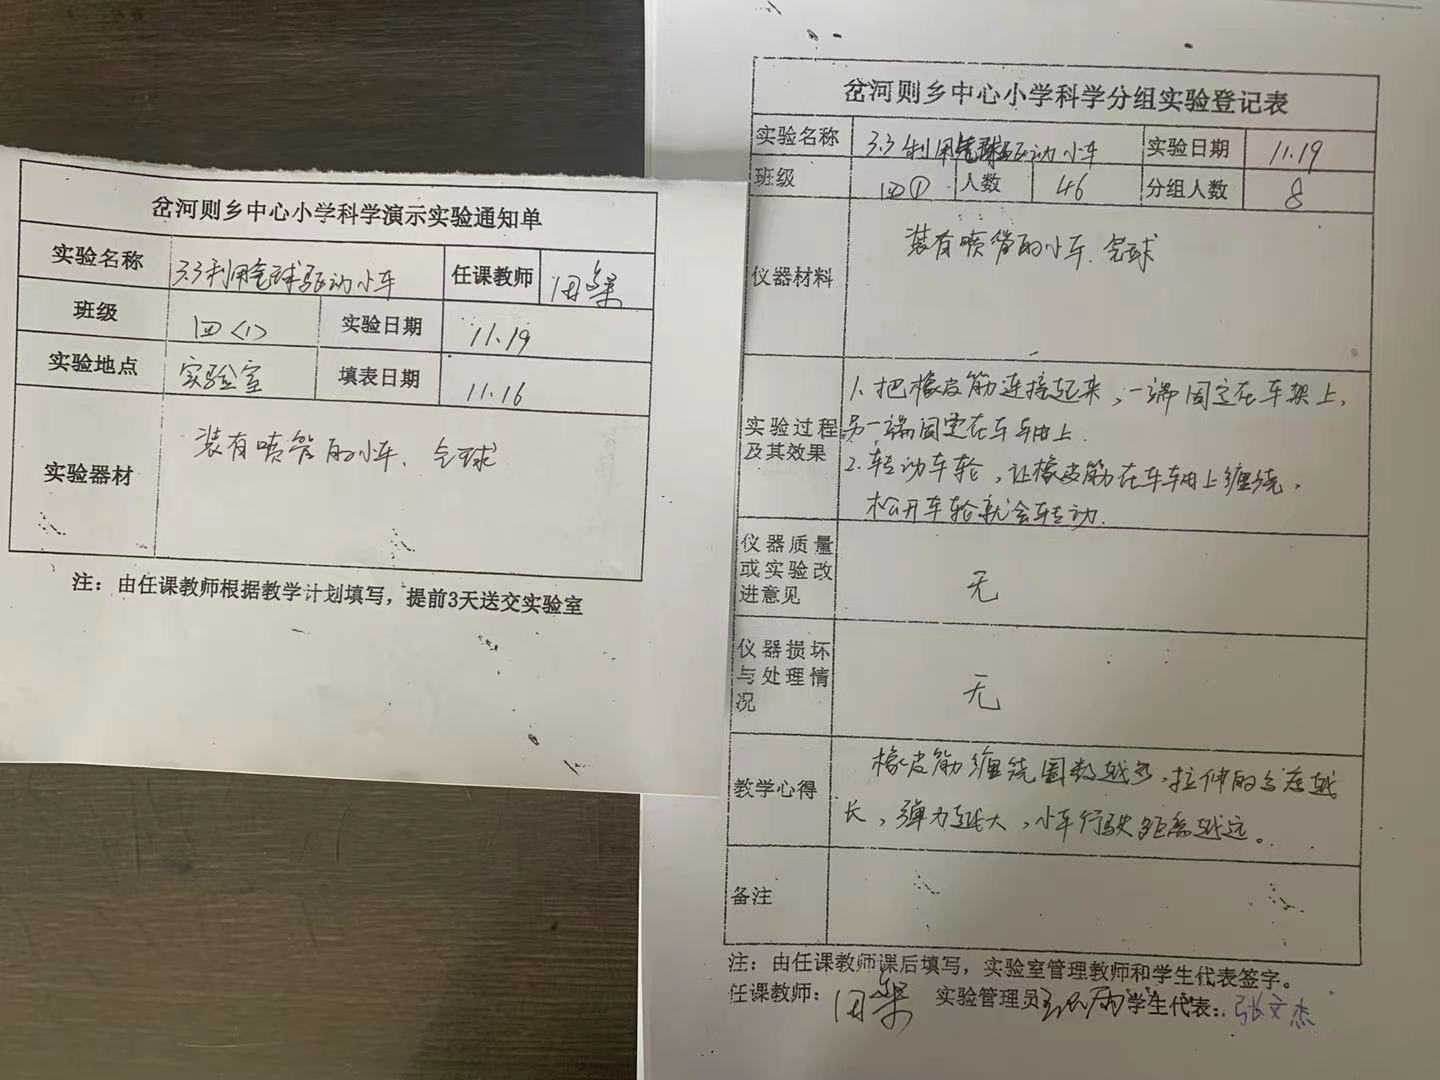 岔河则乡中心小学科学演示实验通知单
实验名称 3.3利用气球驱动小车 任课教师 田
班级 四〈1〉 实验日期 11.19
实验地点 实验室 填表日期 11.16
实验器材 装有喷管的小车、气球
注：由任课教师根据教学计划填写，提前3天送交实验室
岔河则乡中心小学科学分组实验登记表
实验名称 3.3利用气球驱动小车 实验日期 11.19
班级 四① 人数 46 分组人数 8
仪器材料 装有喷管的小车、气球
实验过程及其效果
1.把橡皮筋连接起来，一端固定在车架上，
另一端固定在车轴上.
2.转动车轮，让橡皮筋在车轴上缠绕，
松开车轮就会转动.
仪器质量
或实验改
进意见
无
仪器损坏
与处理情
况
无
教学心得
橡皮筋缠绕圈数越多，拉伸的长度越
长，弹力越大，小车行驶距离越远。
备注
注：由任课教师课后填写，实验室管理教师和学生代表签字。
任课教师：田 实验管理员 学生代表：张文杰